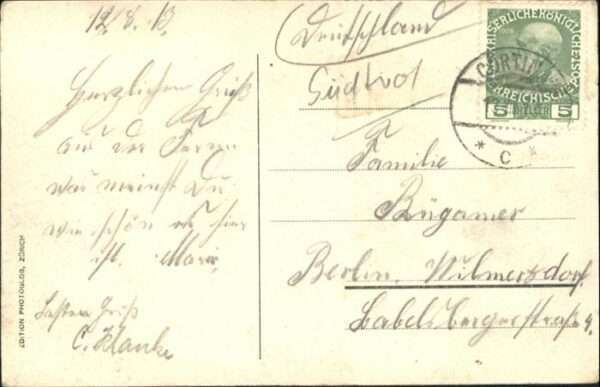 12/8.13.
Herzlichen Gruß
aus der Ferne
was meinst Du
wie schön es hier
ist. Marie,
Besten Gruß
C. Klanke
EDITION PHOTOGLOB, ZÜRICH
(Deutschland
Südtirol
KAISERLICHE KÖNIGLICHE
5 5
CORTINA
* C *
Familie
Bügamer
Berlin, Wilmersdorf.
Babelsbergerstraße 4.